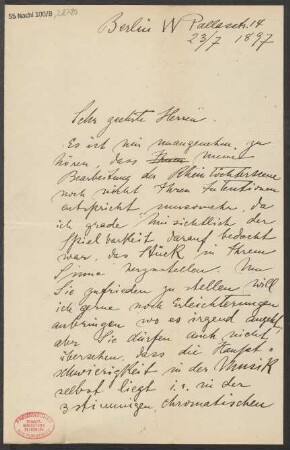 55 Nachl 100/B
Berlin W Pallasstr. 14
23/7 1897
Sehr geehrte Herren.
Es ist mir unangenehm, zu
hören, dass meine
Bearbeitung der Rheintöchterscene
noch nicht Ihren Intentionen
entspricht umsomehr, da
ich grade hinsichtlich der
Spielbarkeit darauf bedacht
war, das Stück in Ihrem
Sinne herzustellen. Um
Sie zufrieden zu stellen will
ich gerne noch Erleichterungen
anbringen wo es irgend angeht,
aber Sie dürfen auch nicht
übersehen, dass die Haupt-
schwierigkeit in der Musik
selbst liegt i.e. in der
3stimmigen chromatischen